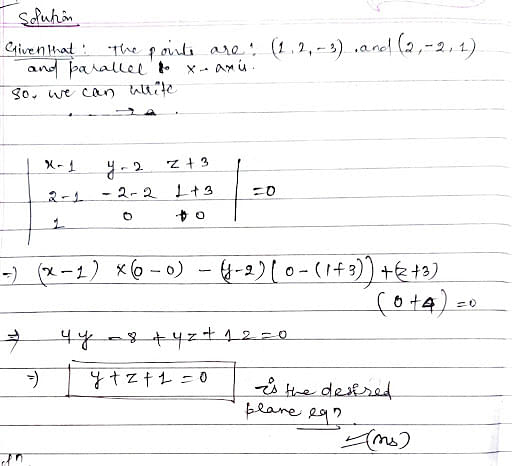 Solution
Given that : The points are : (1, 2, -3) and (2, -2, 1)
and parallel to x-axis.
So, we can write
x-1 y-2 z+3
2-1 -2-2 1+3 =0
1 0 0
=) (x-1) x(0-0) - (y-2) [0-(1+3)] +(z+3)
(0+4) =0
=> 4y -8 +4z+12=0
=) y+z+1=0 is the desired
plane eqn.
(Ans)